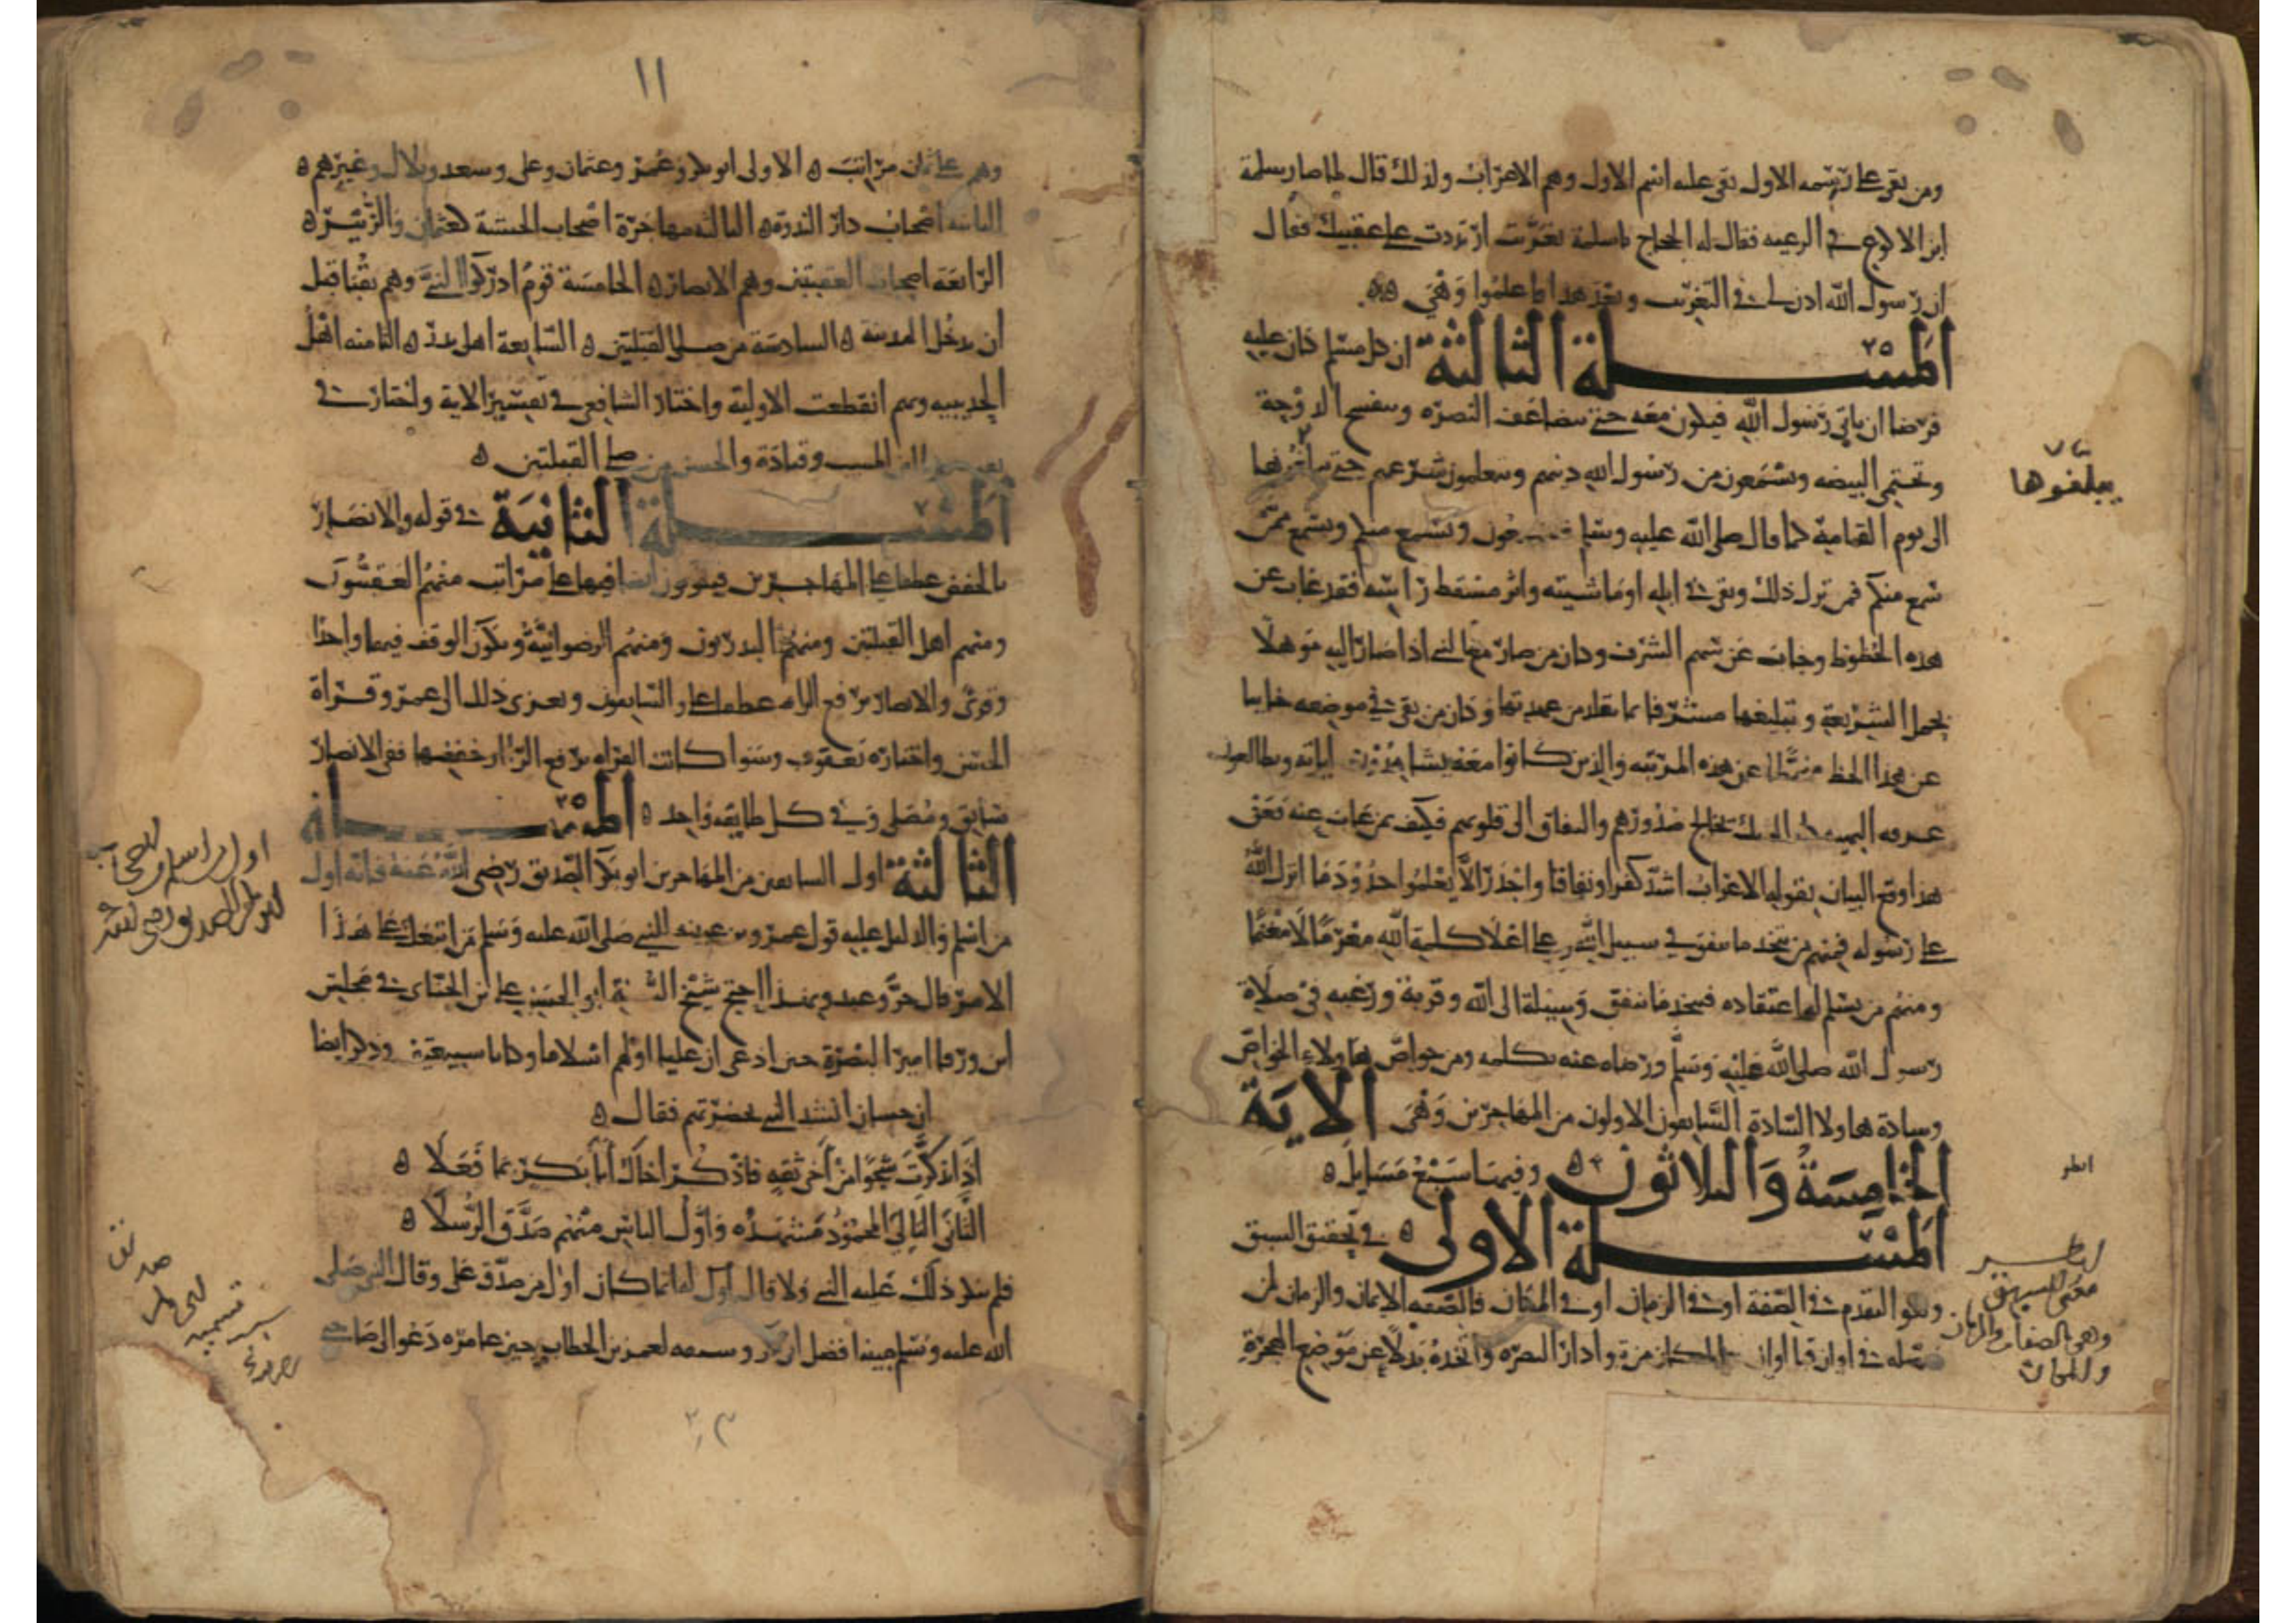 ومن بقي على رسمه الاول بقي عليه اسم الاول وهم الاعراب ولذلك قال لما صار سلمة
ابن الاكوع في الرعيه فقال له الحجاج يا سلمة تعربت ارتددت على عقبيك فقال
ان رسول الله اذن لي في التغرب وبعد هذا فاعلموا وهي
المسلة الثالثة ان كل مسلم كان عليه
فرضا ان ياتي رسول الله فيكون معه حتى تتضاعف النصره وتنفسح الدوحة
وتحتمي البيضه ويسمعون من رسول الله دينهم ويتعلمون شرعهم حتى
يبلغوها
الى يوم القيامة كما قال صلى الله عليه وسلم تسمعون ويسمع منكم ويسمع ممن
سمع منكم فمن ترك ذلك وبقي في ابله او ماشيته واثر مسقط راسه فقد غاب عن
هذه الحظوظ وخاب عن سهم الشرف وكان من صار مع النبي اذا صار اليه موهلا
لحمل الشريعة وتبليغها متشرفا بما تقلد من عهدتها وكان من بقي في موضعه خايبا
عن هذا الحظ منحطا عن هذه المرتبه والذين كانوا معه يشاهدون اياته ويطالعون
غرته البهيه كان الشك يخالج صدورهم والنفاق الى قلوبهم فكيف بمن غاب عنه فعن
هذا وقع البيان بقوله الاعراب اشد كفرا ونفاقا واجدر الا يعلموا حدود ما انزل الله
على رسوله فمنهم من يتخذ ما ينفق في سبيل الله وعلى اعلا كلمة الله مغرما لا مغنما
ومنهم من يسلم له اعتقاده فيتخذ ما ينفق وسيلة الى الله وقربة ورغبه في صلاة
رسول الله صلى الله عليه وسلم ورضاه عنه بكلمه ومن خواص هاولاء الخواص
وسادة هاولا السادة السابقون الاولون من المهاجرين وهي الاية
الخامسة والثلاثون وفيها سبع مسايل
انظر
المسلة الاولى في تحقيق السبق
وهو التقدم في الصفة او في الزمان او في المكان فالصفه الايمان والزمان لمن
حصله في اوان قبل اوان والمكان من تبوا دار النصره واتخذه بدلا عن موضع الهجرة
انظر
معنى السبق
وهي بالصفات والزمان
والمكان
١١
وهم على ثمان مراتب الاولى ابو بكر وعمر وعثمان وعلي وسعد وبلال وغيرهم
الثانيه اصحاب دار الندوة الثالثه مهاجرة اصحاب الحبشة كعثمان والزبير
الرابعة اصحاب العقبتين وهم الانصار الخامسة قوم ادركوا النبي وهم بقبا قبل
ان يدخل المدينة السادسة من صلى القبلتين السابعة اهل بدر الثامنه اهل
الحديبيه وبهم انقطعت الاولية واختار الشافعي في تفسير الاية واختار في
ابن المسيب وقتادة والحسن من صلى القبلتين
المسلة الثانية في قوله والانصار
بالخفض عطفا على المهاجرين فيكونون ايضا فيها على مراتب منهم العقبيون
ومنهم اهل القبلتين ومنهم البدريون ومنهم الرضوانية ويكون الوقف فيهما واحدا
وقري والانصار برفع الراء عطفا على والسابقون ويعزى ذلك الى عمر وقراة
الحسن واختاره يعقوب وسوا كانت القراه برفع الراء او خفضها ففي الانصار
سابق ومصلي وفي كل طايفه واحد المسلة
الثالثة اول السابقين من المهاجرين ابو بكر الصديق رضي الله عنه فانه اول
اول من اسلم من الصحابة
ابو بكر الصديق رضي الله عنه
من اسلم والدليل عليه قول عمرو بن عبسه للنبي صلى الله عليه وسلم من اتبعك على هذا
الامر قال حر وعبد وبهذا احتج شيخ السنة ابو الحسن على ابن الجباي في مجلس
ابن ورقا امير البصرة حين ادعى ان عليا اولهم اسلاما وكانا شيعية وذكر ايضا
ان حسان انشد النبي بحضرتهم فقال
اذا تذكرت شجوا من اخي ثقة فاذكر اخاك ابا بكر بما فعلا
الثاني التالي المحمود مشهده واول الناس منهم صدق الرسلا
فلم ينكر ذلك عليه النبي ولا قال اول له انما كان اول من صدق علي وقال النبي صلى
الله عليه وسلم مبينا افضل ابي بكر وسمعه لعمر بن الخطاب حين غامره دعوا لي صاحبي
صديق
سبب تسميه